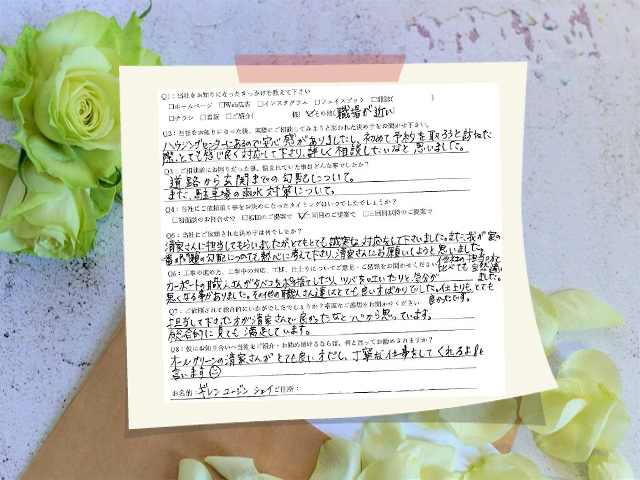 Q1：当社をお知りになったきっかけを教えて下さい
□ホームページ □Web広告 □インスタグラム □フェイスブック □雑誌( )
□チラシ □看板 □ご紹介( 様) ☑その他(職場が近い
Q2：当社をお知りになった後、実際にご相談してみようと思われた決め手をお聞かせ下さい。
ハウジングセンターにあるので安心感がありましたし、初めて予約を取ろうと訪ねた
際、とても感じ良く対応して下さり、詳しく相談したいなと思いました。
Q3：ご相談前にお困りだった事、悩まれていた事はどんな事でしたか？
道路から玄関までの勾配について。
また、駐車場の雨水対策について。
Q4：当社にご依頼頂く事をお決めになったタイミングはいつでしたでしょうか？
□初面談のお打合せで □初回のご提案で ☑二回目のご提案で □三回目以降のご提案で
Q5：当社にご依頼された決め手は何でしたか？
清家さんに担当してもらいましたが、とてもとても誠実な対応をして下さいました。また、我が家の
一番の問題の勾配についても、熱心に考えて下さり、清家さんにお願いしようと思いました。
Q6：工事の進め方、工事中の対応、工程、仕上りについてご意見・ご感想をお聞かせください
他社の担当の方と
比べても全然違い
ました。
カーポートの職人さんがタバコをポイ捨てしたり、ツバを吐いたりと気分が
悪くなる事がありました。その他の職人さん達はとても良い方ばかりでした。仕上りも、とても
良かったです。
Q7：ご依頼されて総合的にいかがでしたでしょうか？率直なご感想をお聞かせください
担当して下さった方が清家さんで良かったなと心から思っています。
総合的に見ても満足しています。
Q8：仮にお知り合いへ当社をご紹介・お勧め頂けるならば、何と言ってお勧めされますか？
オールグリーンの清家さんがとても良い方だし、丁寧な仕事をしてくれるよ!!と
言います☺
お名前：ギレン ユージン シェイ ご住所：